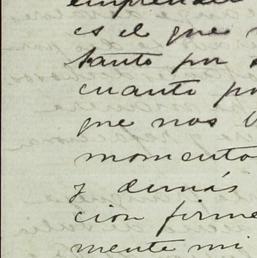 emprender
es el que
tanto por
cuanto po
que nos
momento
y demás
cion firme
mente mi